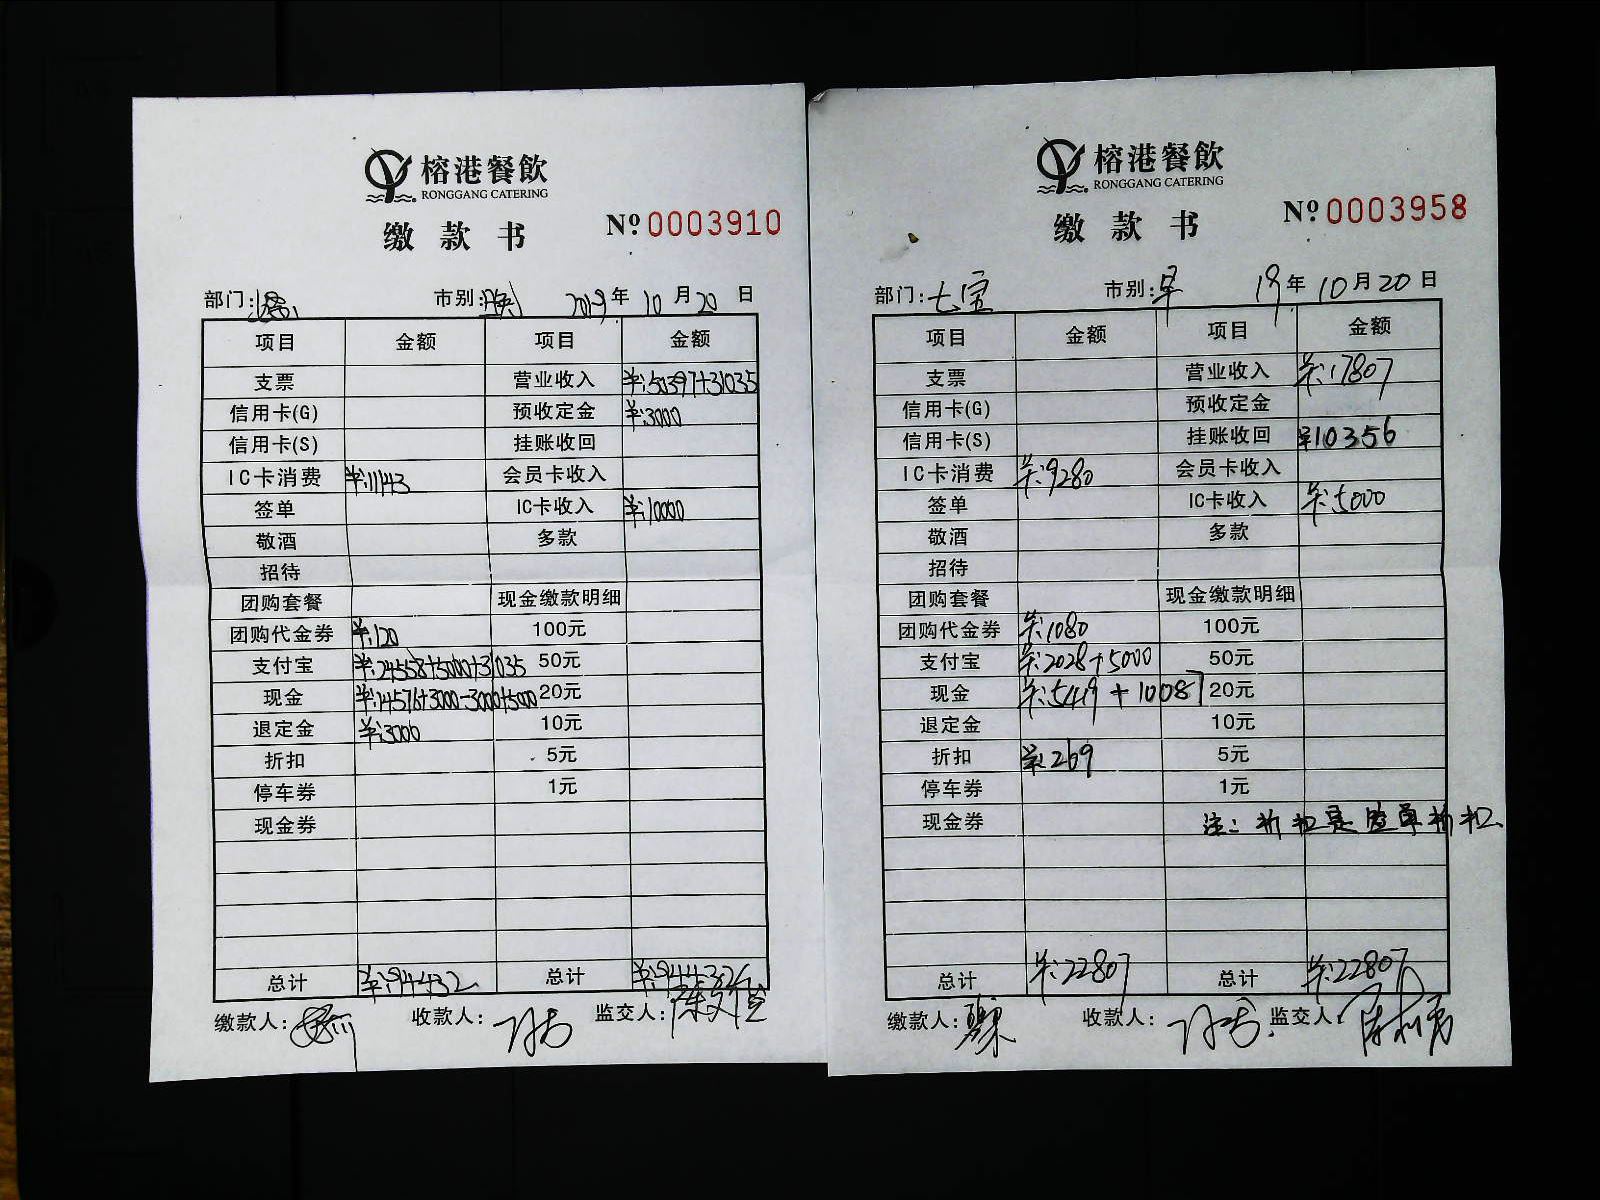 榕港餐飲
RONGGANG CATERING
缴款书
Nº 0003910
部门: 市别: 2019年 10月 20日
项目 金额 项目 金额
支票 营业收入 ¥:50397+31035
信用卡(G) 预收定金 ¥:3000
信用卡(S) 挂账收回
IC卡消费 ¥:11143 会员卡收入
签单 IC卡收入 ¥:10000
敬酒 多款
招待
团购套餐 现金缴款明细
团购代金券 ¥:120 100元
支付宝 ¥:24558+5000+31035 50元
现金 ¥:14576+3000-3000+5000 20元
退定金 ¥:3000 10元
折扣 5元
停车券 1元
现金券
总计 ¥:94432 总计 ¥:94432
缴款人: 收款人: 监交人:
榕港餐飲
RONGGANG CATERING
缴款书
Nº 0003958
部门:七宝 市别:早 19年 10月 20日
项目 金额 项目 金额
支票 营业收入 ¥:17807
信用卡(G) 预收定金
信用卡(S) 挂账收回 ¥10356
IC卡消费 ¥:9280 会员卡收入
签单 IC卡收入 ¥:5000
敬酒 多款
招待
团购套餐 现金缴款明细
团购代金券 ¥:1080 100元
支付宝 ¥:2028+5000 50元
现金 ¥:5419+10087 20元
退定金 10元
折扣 ¥:269 5元
停车券 1元
现金券 注:折扣是签单折扣
总计 ¥:22807 总计 ¥:22807
缴款人: 收款人: 监交人: